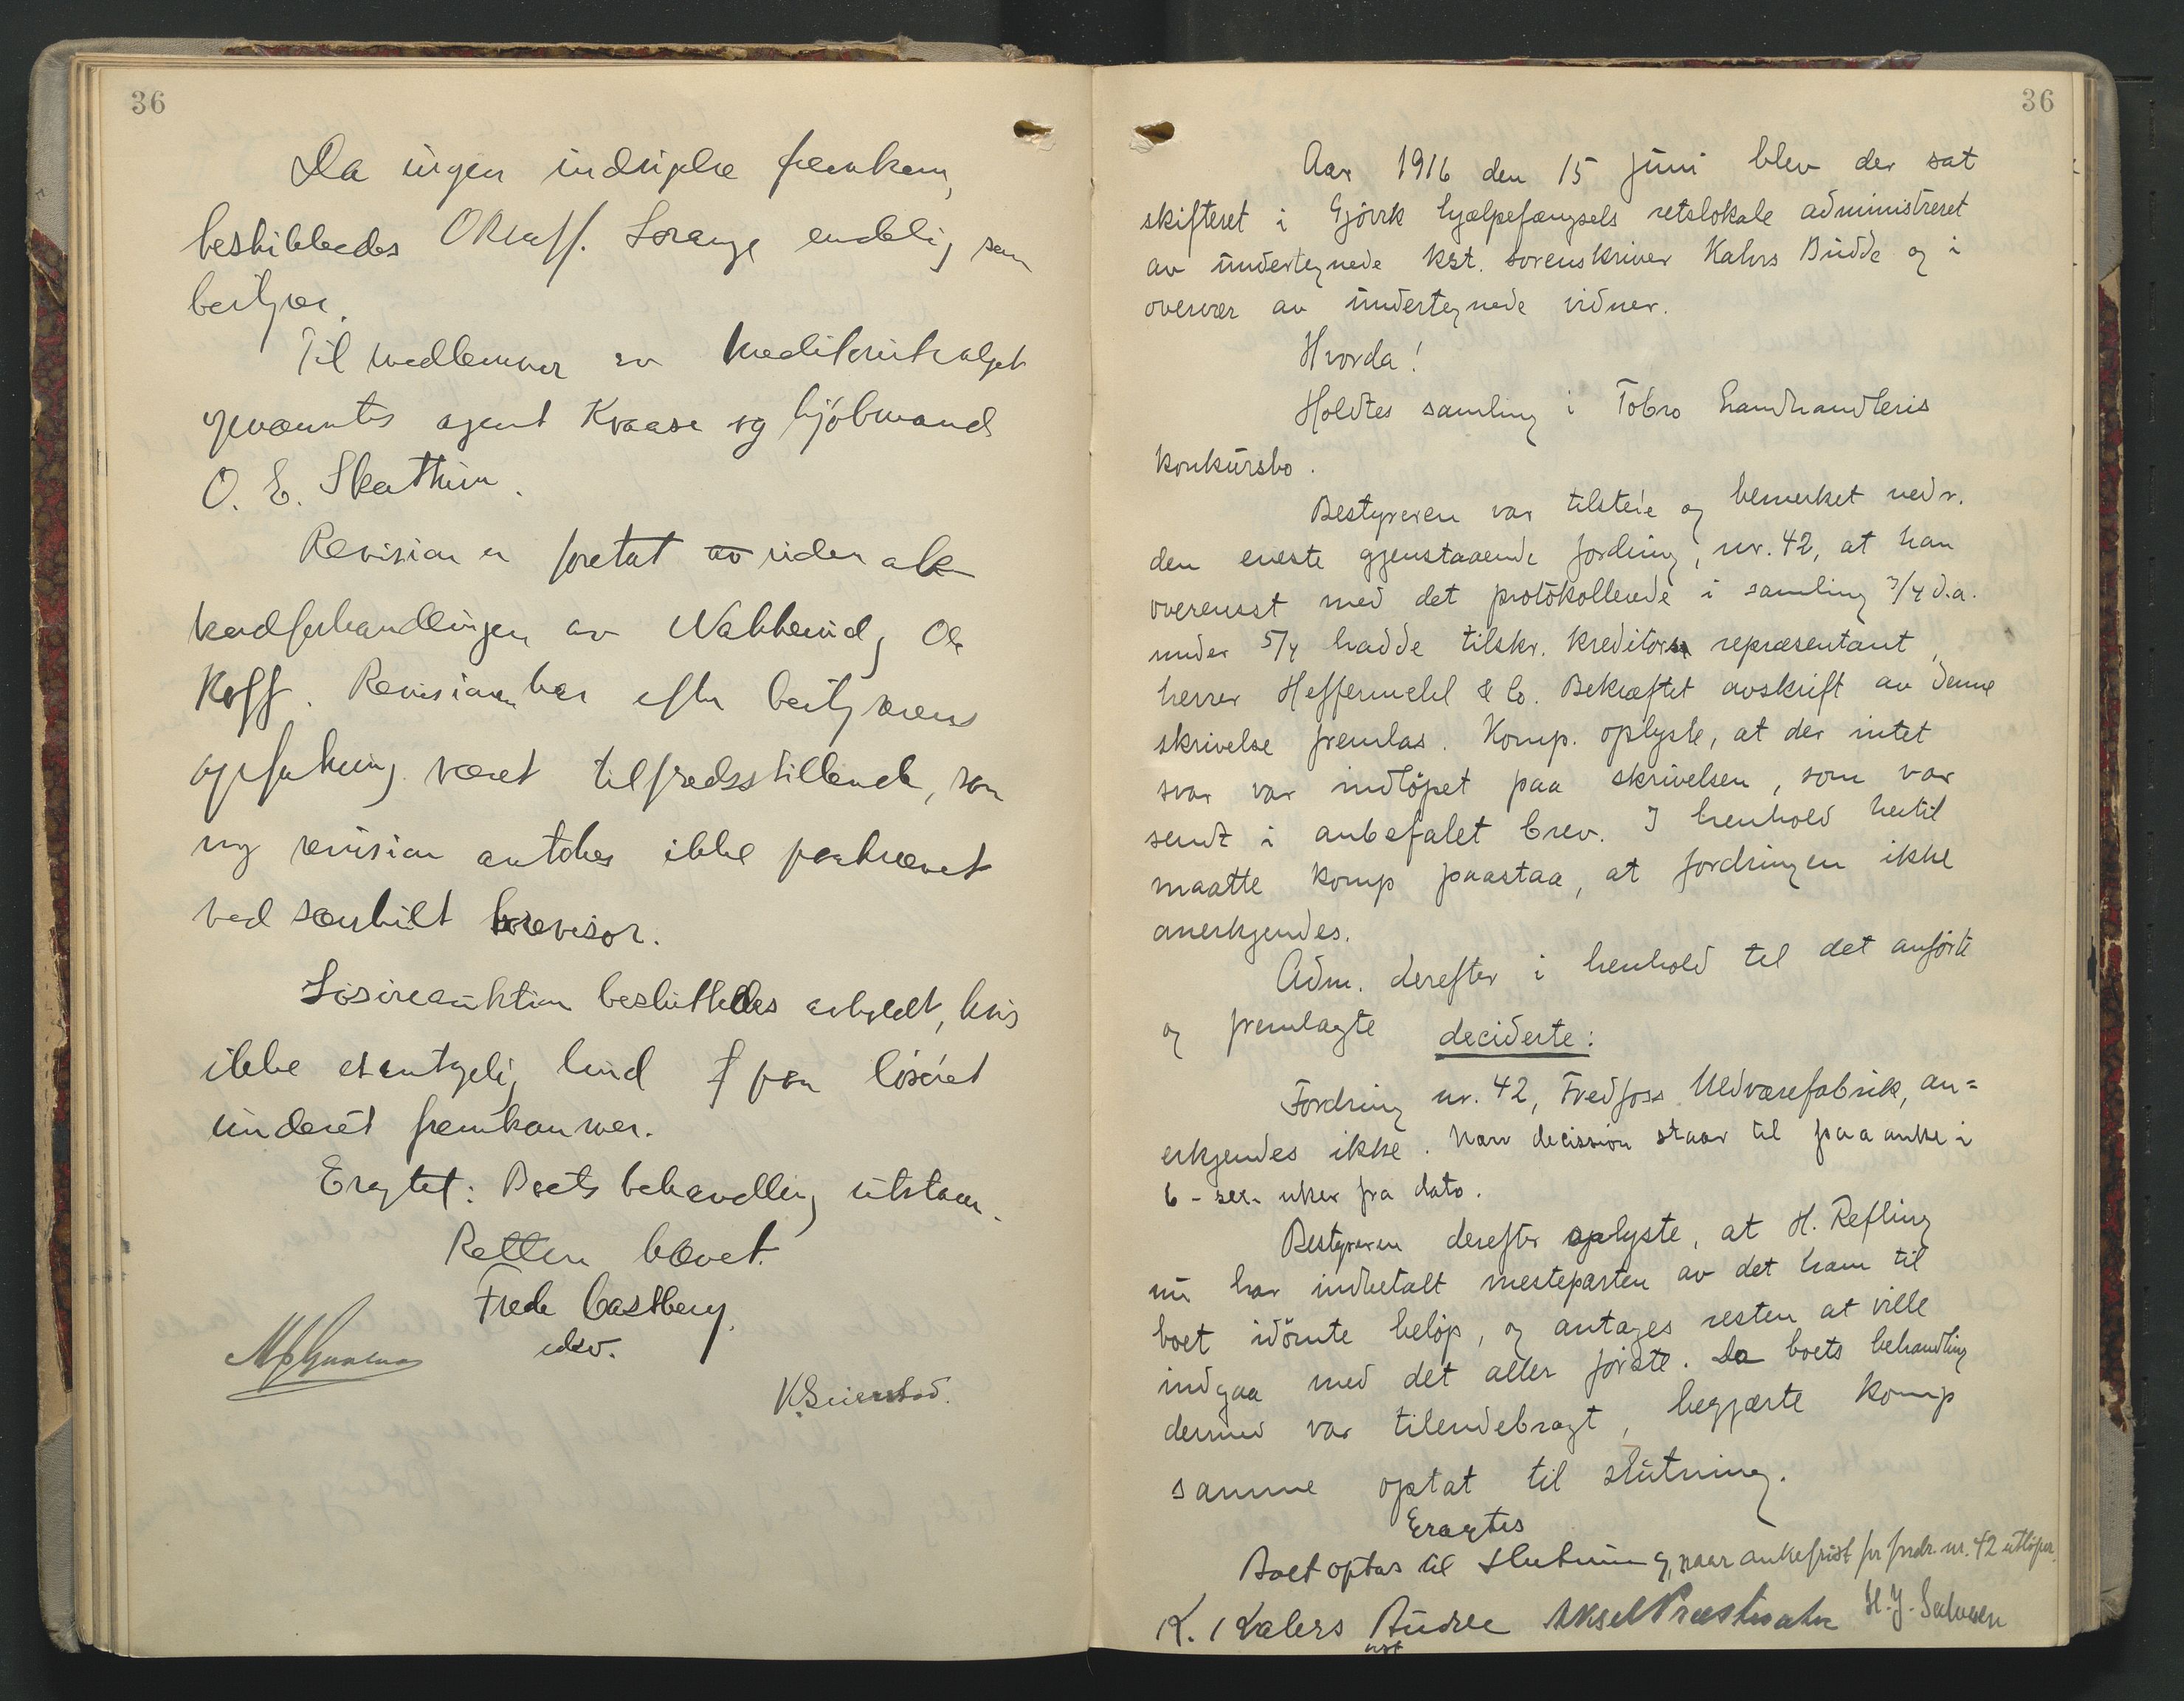 36
Da ingen indsigelse fremkom,
beskikkedes ORsaff. Lorange endelig som
bestyrer.
Til medlemmer av kreditorutvalget
gjenvalgtes agent Kraase og kjöbmand
O. E. Skattum.
Revision er foretat under ak-
kordforhandlingen av Nakkerud og
Koff. Revisionen har efter bestyrerens
opfatning været tilfredsstillende, saa
ny revision antokes ikke paakrævet
ved særskilt revisor.
Lösöreauktion besluttedes avholdt, hvis
ikke et antagelig bud paa lösöret
underet fremkommer.
Eragtet: Boets behandling utstaar.
Retten hævet.
Frede Castberg
edsv.
K. Seierstad.
36
Aar 1916 den 15 juni blev der sat
skifteret i Gjövik hjælpefængsels retslokale administreret
av undertegnede kst. sorenskriver Kahrs Budde og i
overvær av undertegnede vidner.
Hvorda!
Holdtes samling i Tobro landhandleris
konkursbo.
Bestyreren var tilstede og bemerket vedr.
den eneste gjenstaaende fordring, nr. 42, at han
overensst med det protokollerede i samling 3/4 d.a.
under 5/4 hadde tilskr. kreditors repræsentant,
herrer Heffermehl & Co. Bekræftet avskrift av denne
skrivelse fremlas. Komp. oplyste, at der intet
svar var indlöpet paa skrivelsen, som var
sendt i anbefalet brev. I henhold hertil
maatte komp paastaa, at fordringen ikke
anerkjendes.
Adm. derefter i henhold til det anförte
og fremlagte deciderte:
Fordring nr. 42, Fredfoss Uldvarefabrik, an=
erkjendes ikke. Nærv decission staar til paaanke i
6 - sex uker fra dato.
Bestyreren derefter oplyste, at H. Refling
nu har indbetalt mesteparten av det ham til
boet idömte belöp, og antages resten at ville
indgaa med det aller förste. Da boets behandling
dermed var tilendebragt, begjærte komp
samme optat til slutning.
Eragtes
Boet optas til slutning, naar ankefrist for fordr. nr. 42 utlöper.
K. Kahrs Budde Aksel Præsthaht H. J. Salvesen
kst